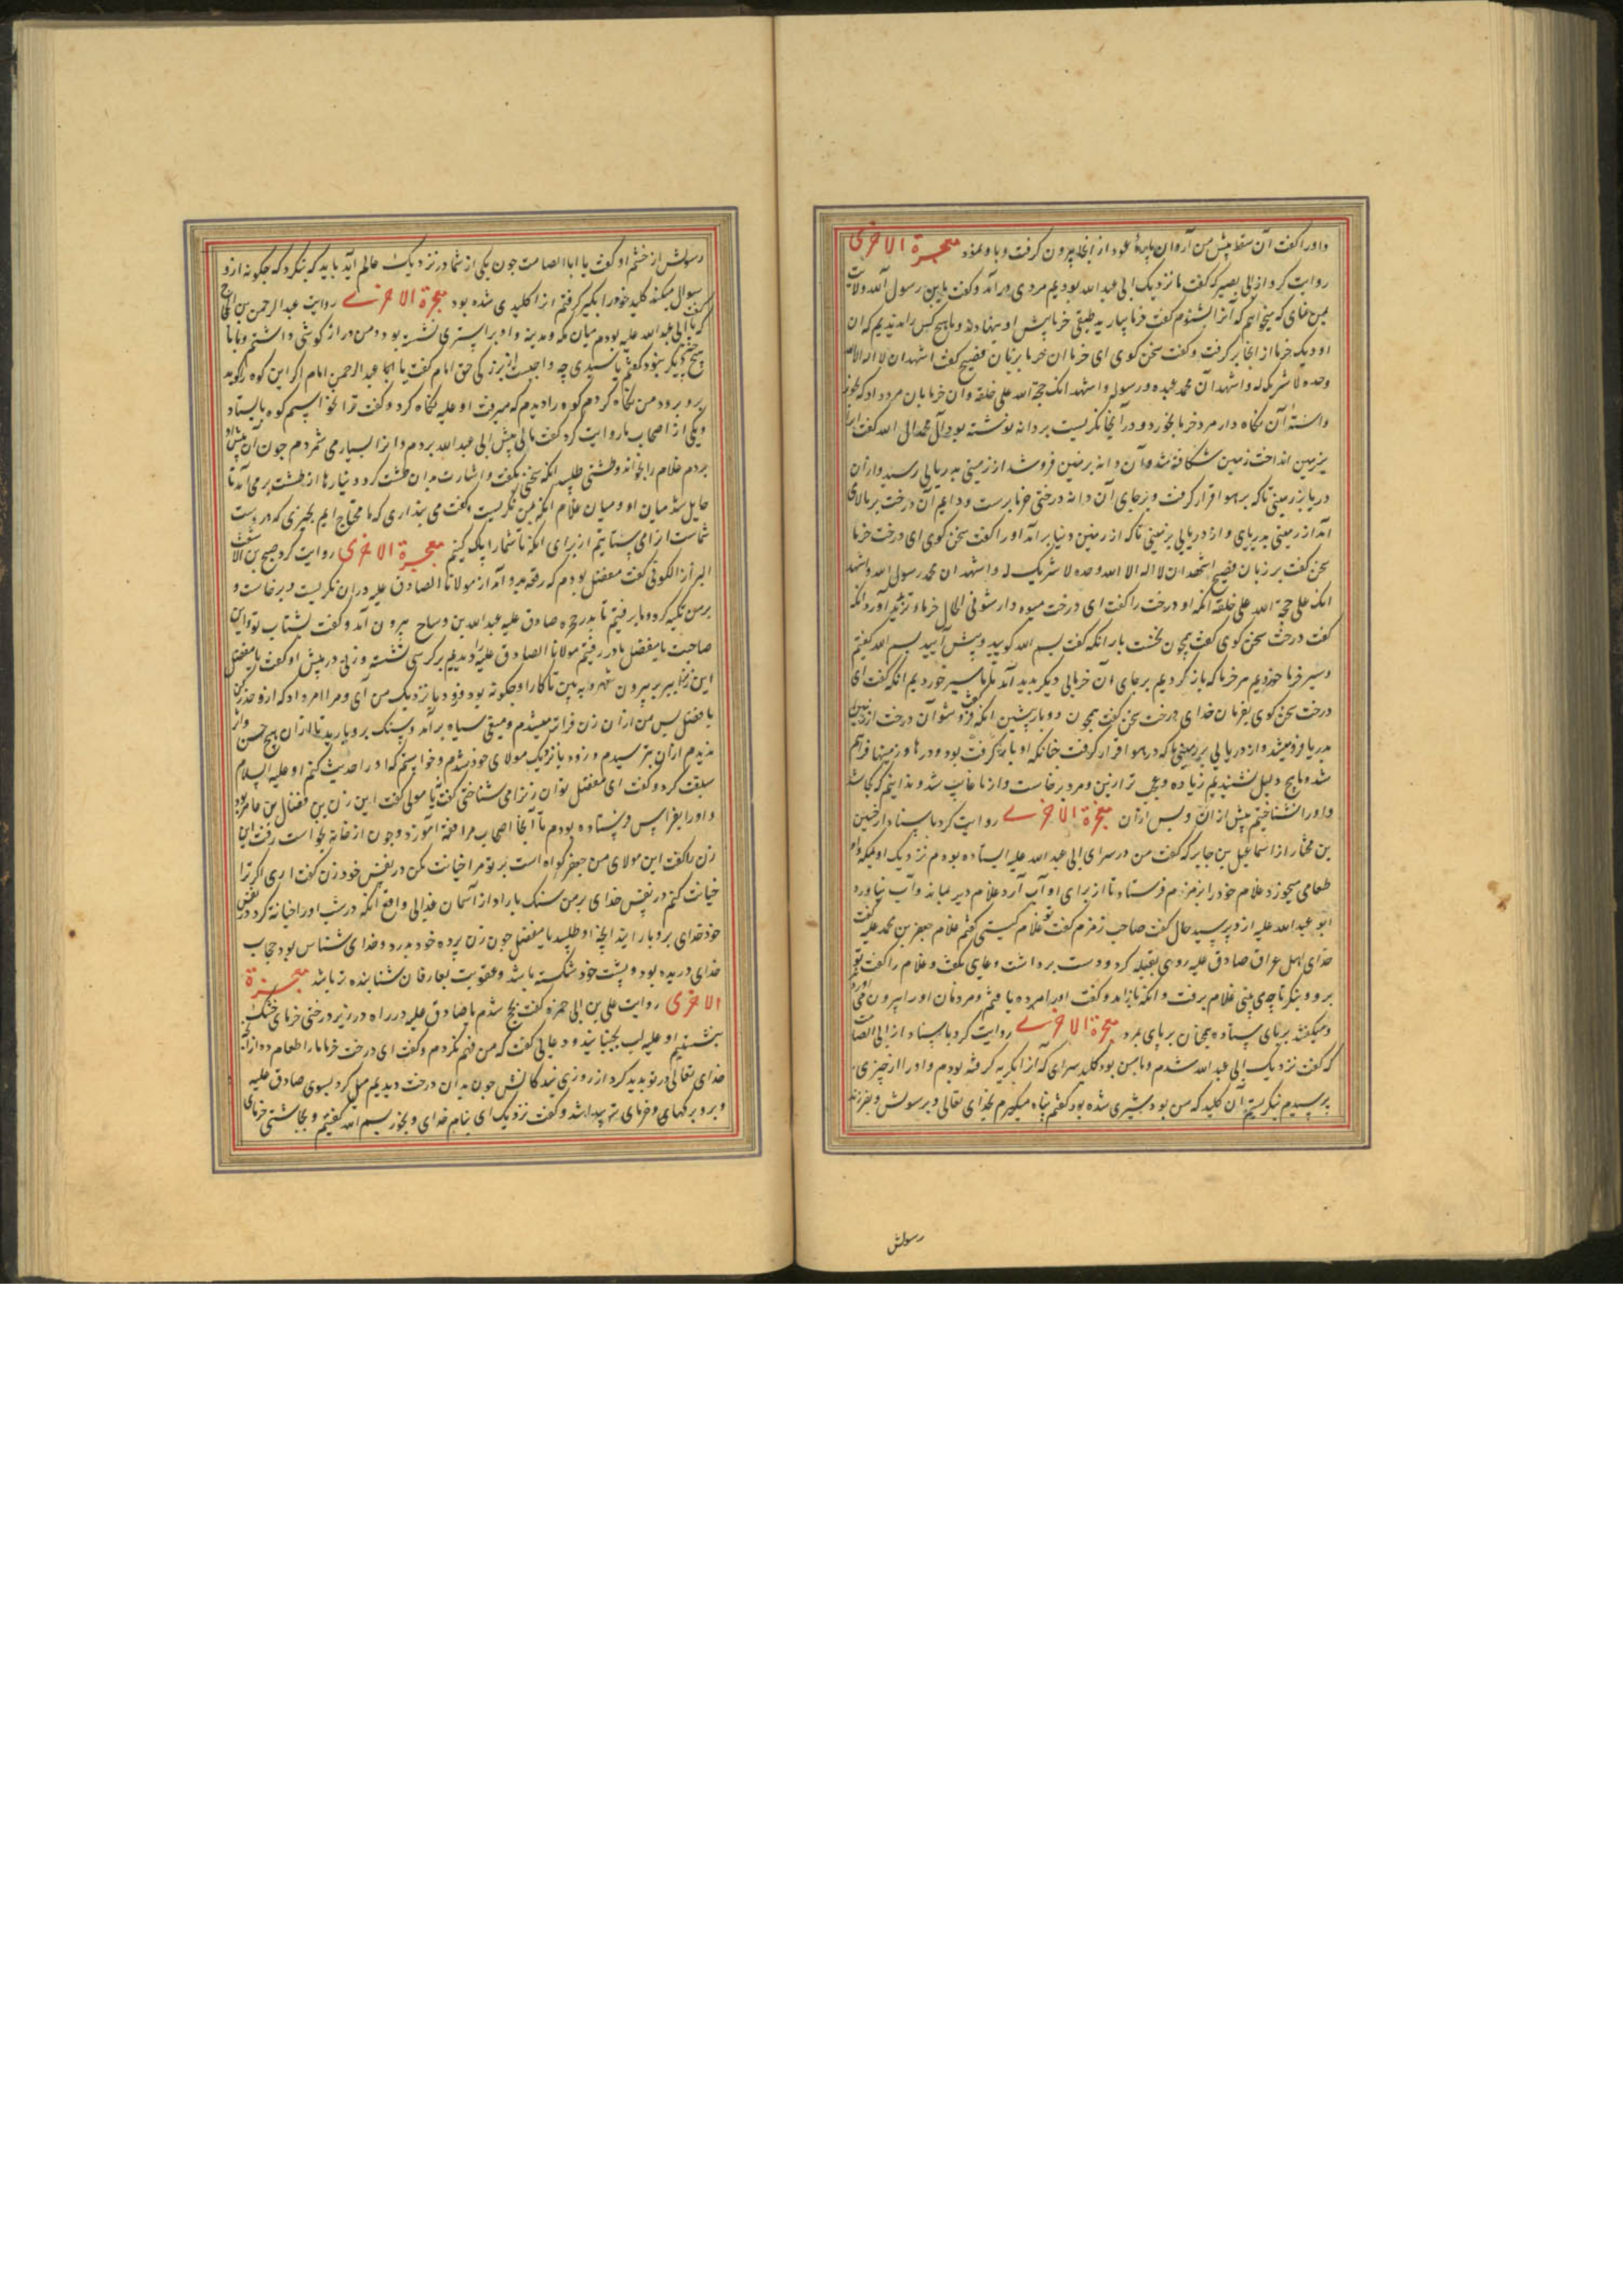 و او را گفت آن سقط پیش من آر و آن پارهٔ عود از آنجا بیرون گرفت و با و نمود معجزة الاخری
روایت کرد از ابی بصیر که گفت ما نزدیک ابی عبد الله بودیم مردی در آمد و گفت یا بن رسول الله ولایت
بمن نمای که میخواهم که آنرا بشنوم گفت خرما بیارید طبقی خرما پیش او بنهادند و ما هیچ کس را ندیدیم که آن
او دیک خرما از انجا بر گرفت و گفت سخن کوی ای خرما آن خرما بزبان فصیح گفت اشهد ان لا اله الا الله
وحده لا شریک له و اشهد ان محمد عبده و رسوله و اشهد انک حجة الله علی خلقه و آن خرما بان مرد داد که بخور
و استهٔ آن نکاه دار مرد خرما بخورد و در آنجا نکریست بر دانه نوشته بود آل محمد الی الله گفت این
بزمین انداخت زمین شکافته شد و آن دانه بزمین فرو شد از زمینی بدریایی رسید و از آن
دریا بزمینی تا که بر هوا قرار گرفت و بر جای آن دانه درختی خرما برست و دایم آن درخت بر بالا می
آمد از زمینی بدریای و از دریایی بزمینی تا که از زمین دنیا بر آمد او را گفت سخن کوی ای درخت خرما
سخن گفت بر زبان فصیح اشهد ان لا اله الا الله وحده لا شریک له و اشهد ان محمد رسول الله و اشهد
انک علی حجة الله علی خلقه انکه او درخت را گفت ای درخت میوه دار شو فی الحال خرما و تر آورد انکه
گفت درخت سخن کوی گفت همچون نخست بار انکه گفت بسم الله کویید و پیش آیید بسم الله گفتیم
و سیر خرما خوردیم هر خرما که باز کردیم بر جای آن خرمایی دیکر بدید آمد تا ما سیر خوردیم انکه گفت ای
درخت سخن کوی بفرمان خدای درخت سخن گفت همچون دو بار پیشین انکه گفت فرو شو آن درخت از زمین
بدریا فرو میشد و از دریایی بزمینی تا که در هوا قرار گرفت چنانکه او بار گرفت بود و درها و زمینها فراهم
شد و ما هیچ دلیل نشنیدیم زیاده و عجب تر ازین و مرد برخاست و از ما غایب شد و ندانیم که کجا شد
و او را نشناختیم پیش از آن و پس از آن معجزة الاخری روایت کرد باسناد از حسین
بن مختار از اسماعیل بن جابر که گفت من در سرای ابی عبد الله علیه ایستاده بودم نزدیک او بمکه و او
طعامی میخورد غلام خود را بزمزم فرستاد تا از برای او آب آرد غلام دیر بماند و آب نیاورد
ابو عبد الله علیه از و پرسید حال گفت صاحب زمزم گفت تو غلام کیستی گفتم غلام جعفر بن محمد علیه گفت
خدای اهل عراق صادق علیه روی بقبله کرد و دست برداشت و دعای بگفت و غلام را گفت تو
برو و بنکر تا چه می بینی غلام برفت و انکه باز آمد و گفت او را مرده یافتم و مردمان او را بیرون می آوردند
و میگفتند بر پای ستاده همچنان بر پای بمرد معجزة الاخری روایت کرد باسناد از ابی الصامت
که گفت نزدیک ابی عبد الله شدم و با من بود کلید سرای که از انکریه گرفته بودم و او را از چیزی
بپرسیدم بنکریستم آن کلید که من بود شیری شده بود گفتم پناه میگیرم بخدای تعالی و برسولش و بفرزند
رسولش
رسولش از خشم او گفت یا ابا الصامت چون یکی از شما در نزدیک عالم آید باید که بنکرد که چکونه از و
سوال میکند کلید خود را بکیر گرفتم از آ کلیدی شده بود معجزة الاخری روایت عبد الرحمن بن الحجاج
گفت که با ابی عبد الله علیه بودم میان مکه و مدینه و او بر استری نشسته بود و من دراز کوشی داشتم و با ما
هیچ کس دیکر نبود گفتم یا سیدی چه واجبست از بزرکی حق امام گفت یا ابا عبد الرحمن امام اکر این کوه را کوید
برو برود من نکاه کردم کوه را دیدم که میرفت او علیه نکاه کرد و گفت ترا نخواستیم کوه بایستاد
و یکی از اصحاب ما روایت کرد گفت مالی پیش ابی عبد الله بردم و آنرا بسیار می شمردم چون آن پیش او
بردم غلام را بخواند و طشتی طلبید انکه سخنی بگفت و اشارت بدان طشت کرد دینارها از طشت بر می آمد تا
حایل شد میان او و میان غلام انکه بمن نکریست و گفت می پنداری که ما محتاج ایم بچیزی که در دست
شماست از آ می ستانیم از برای انکه تا شما را پاک کنیم معجزة الاخری روایت کرد صبح بن الاشعث
البزاز الکوفی گفت مفضل بودم که رقعه بدو آمد از مولانا الصادق علیه در ان نکریست و برخاست و
بر من تکیه کرد و ما برفتیم تا بدر حجره صادق علیه عبد الله بن وساح بیرون آمد و گفت بشتاب تو و این
صاحبت یا مفضل ما در رفتیم مولانا الصادق علیه را دیدیم بر کرسی نشسته و زنی در پیش او گفت یا مفضل
این زن را ببر بیرون شهر و ببین تا کار او چکونه بود و زود باز نزدیک من آی و مرا امر داد که از و حذر کن
یا مفضل پس من از آن زن فراتر میشدم و میغی سیاه بر آمد و سنک برو بارید تا از آن هیچ حس و اثر
ندیدم از آن بترسیدم و زود با نزدیک مولای خود شدم و خواستم که او را حدیث کنم او علیه السلام
سبقت کرد و گفت ای مفضل تو آن زن را می شناختی گفتم یا مولی گفت این زن بن فضال بن عامر بود
و او را بفرا پس فرستاده بودم تا آنجا اصحاب مرا فقه آموزد و چون از خانه بخواست رفت این
زن را گفت این مولای من جعفر کواه است بر تو مرا خیانت مکن در نفس خود زن گفت اری اکر ترا
خیانت کنم در نفس خدای بر من سنک باراد از آسمان فی الواقع انکه در شب او را خیانت کرد در نفس
خود خدای برو بارانید آنچه او طلبید یا مفضل چون زن پرده خود بدرد و خدای شناس بود حجاب
خدای دریده بود و پشت خود شکسته باشد و عقوبت بعارفان شتابنده تر باشد معجزة
الاخری روایت علی بن ابی حمزه گفت بحج شدم با صادق علیه در راه در زیر درختی خرمای خشک
بنشستیم او علیه لب بجنبانید و دعایی گفت که من فهم نکردم و گفت ای درخت خرما ما را طعام ده از آنچه
خدای تعالی در تو بدید کرد از روزی بندکانش چون بدان درخت دیدیم میل کرد بسوی صادق علیه
و برو برکهای و خرمای تر پیدا شد و گفت نزدیک ای بنام خدای و بخور بسم الله گفتیم و بچاشتی خرمای